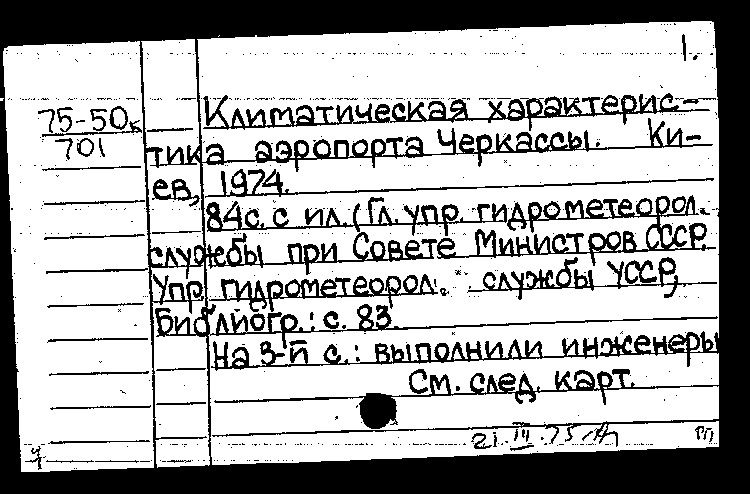 1.
75-50к
701
Климатическая характерис-
тика аэропорта Черкассы. Ки-
ев, 1974.
84с. с ил. (Гл. упр. гидрометеорол.
службы при Совете Министров СССР.
Упр. гидрометеорол. службы УССР,
Библиогр.: с. 83.
На 3-й с.: выполнили инженеры
См. след. карт.
21.III.75
РП